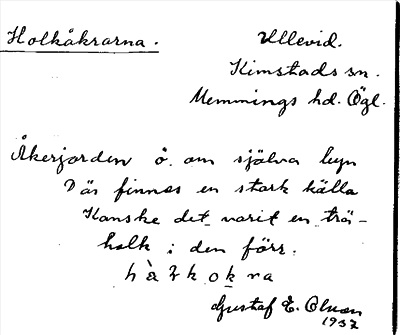 Holkåkrarna.
Ullevid.
Kimstads sn.
Memmings hd. Ögl.
Åkerjorden ö. om själva byn
Där finnes en stark källa
Kanske det varit en trä-
holk i den förr.
Gustaf E. Olsson
1937